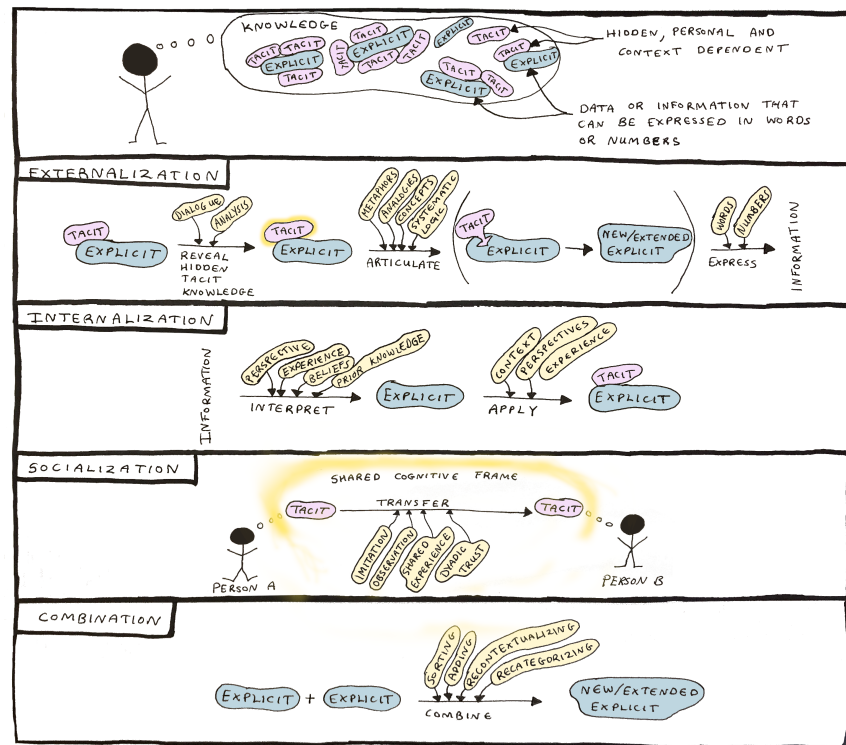 KNOWLEDGE
TACIT
TACIT
EXPLICIT
TACIT
TACIT
TACIT
EXPLICIT
TACIT
TACIT
EXPLICIT
TACIT
TACIT
EXPLICIT
TACIT
TACIT
EXPLICIT
HIDDEN, PERSONAL AND
CONTEXT DEPENDENT
DATA OR INFORMATION THAT
CAN BE EXPRESSED IN WORDS
OR NUMBERS
EXTERNALIZATION
TACIT
EXPLICIT
DIALOGUE
ANALYSIS
REVEAL
HIDDEN
TACIT
KNOWLEDGE
TACIT
EXPLICIT
METAPHORS
ANALOGIES
CONCEPTS
SYSTEMATIC
LOGIC
ARTICULATE
TACIT
EXPLICIT
NEW/EXTENDED
EXPLICIT
WORDS
NUMBERS
EXPRESS
INFORMATION
INTERNALIZATION
INFORMATION
PERSPECTIVE
EXPERIENCE
BELIEFS
PRIOR KNOWLEDGE
INTERPRET
EXPLICIT
CONTEXT
PERSPECTIVES
EXPERIENCE
APPLY
TACIT
EXPLICIT
SOCIALIZATION
SHARED COGNITIVE FRAME
TACIT
TRANSFER
TACIT
IMITATION
OBSERVATION
SHARED
EXPERIENCE
DYADIC
TRUST
PERSON A
PERSON B
COMBINATION
EXPLICIT + EXPLICIT
SORTING
ADDING
RECONTEXTUALIZING
RECATEGORIZING
COMBINE
NEW/EXTENDED
EXPLICIT